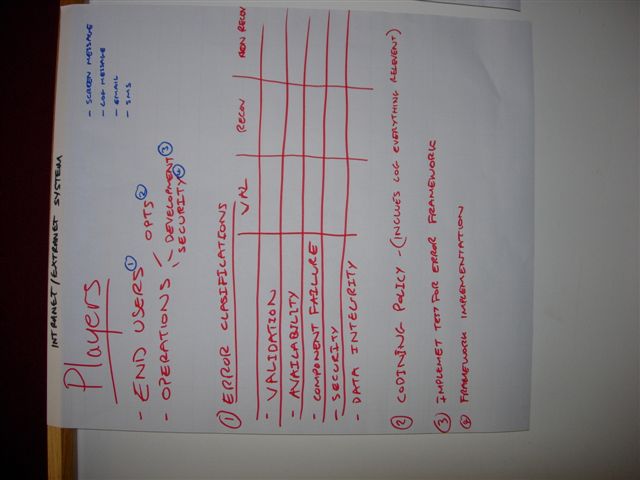 INTRANET/EXTRANET SYSTEM
- SCREEN MESSAGE
- LOG MESSAGE
- EMAIL
- SMS
Players
- END USERS ①
- OPERATIONS OPTS ②
- DEVELOPMENT ③
SECURITY ④
① ERROR CLASIFICATIONS
VAL RECOV NON RECOV
- VALIDATION
- AVAILABILITY
- COMPONENT FAILURE
- SECURITY
- DATA INTEGRITY
② CODINING POLICY - (INCLUES LOG EVERYTHING RELEVENT)
③ IMPLEMET TEST FOR ERROR FRAMEWORK
④ FRAMEWORK IMPLEMENTATION